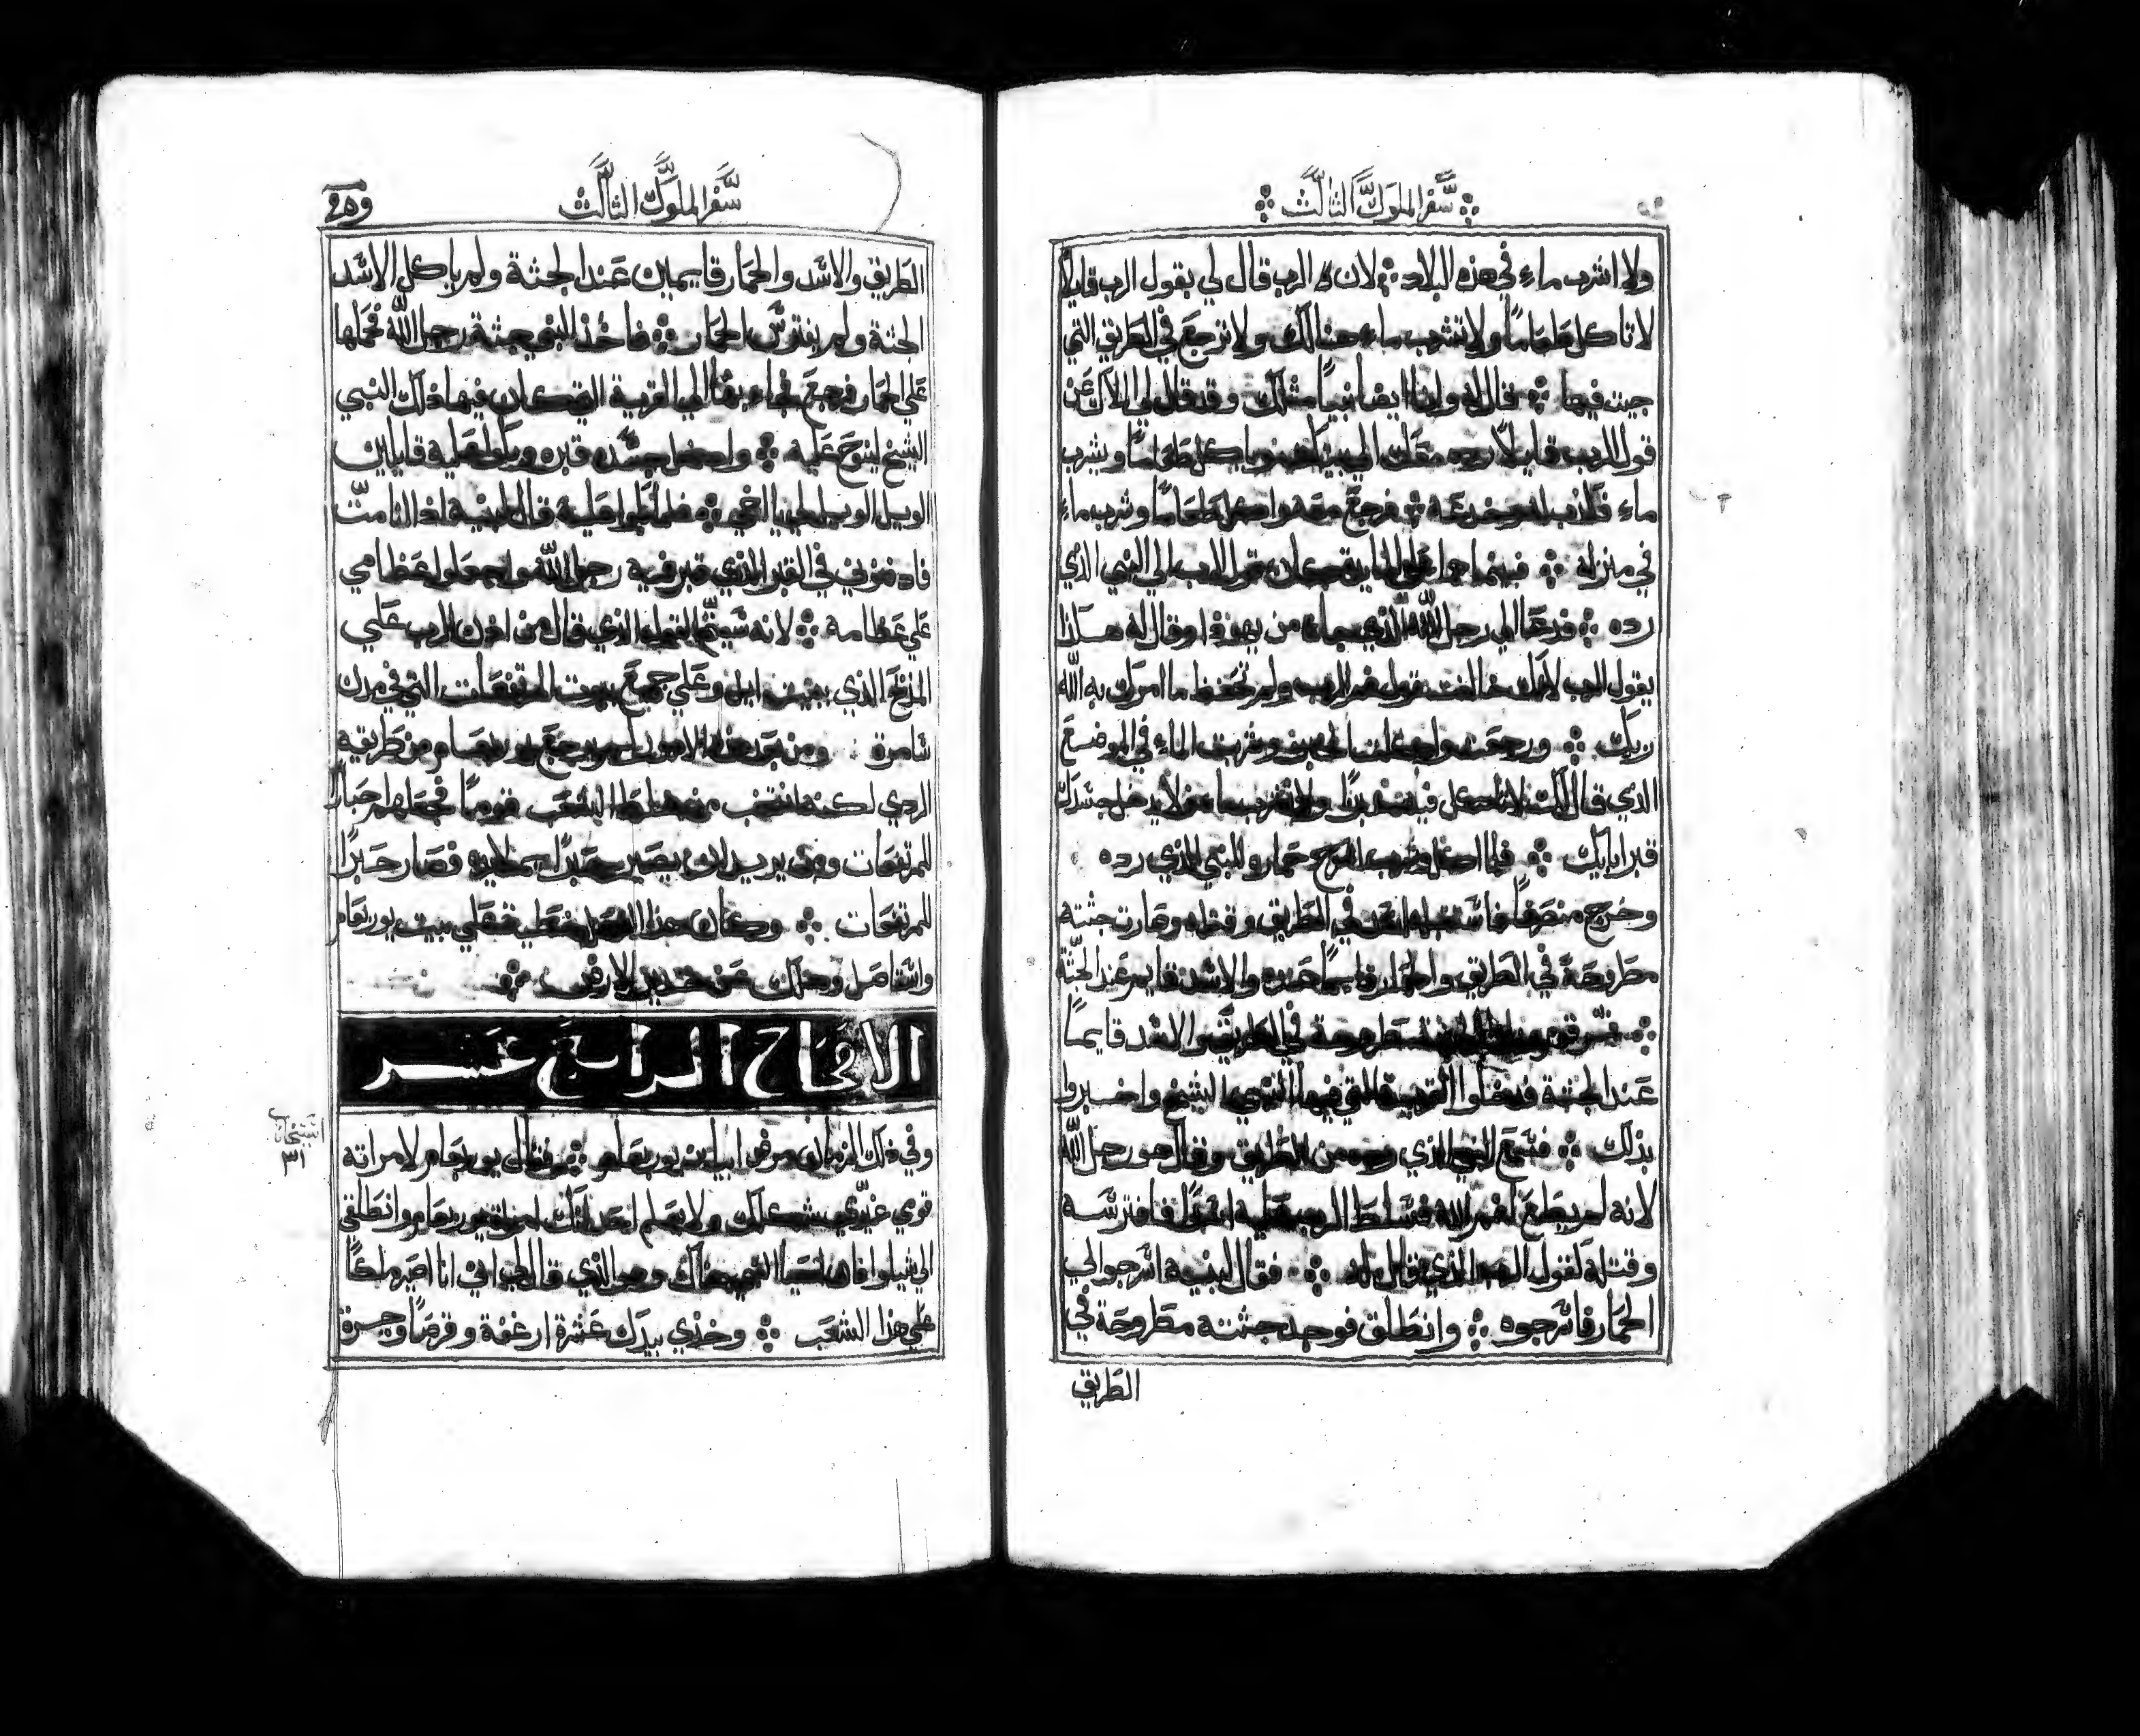 سفر الملوك الثالث
ولا اشرب ماء في هذه البلاد لان الرب قال لي بقول الرب قايلا
لا تاكل طعاما ولا تشرب ماء هنالك ولا ترجع في الطريق التي
جيت فيها قال له وانا ايضا نبيا مثلك وقد قال لي الملاك عن
قول الرب قايلا رده معك الي بيتك وياكل طعاما ويشرب
ماء فكذب له وخدعه فرجع معه واكل طعاما وشرب ماء
في منزله فبينما هما علي المايدة كان قول الرب الي النبي الذي
رده فدعا الي رجل الله الذي جاء من يهوذا وقال له هكذا
يقول الرب لانك خالفت قول فم الرب ولم تحفظ ما امرك به الله
ربك ورجعت واكلت الخبز وشربت الماء في الموضع
الذي قال لك لا تاكل فيه خبزا ولا تشرب ماء لا يدخل جسدك
قبر ابايك فلما اكل وشرب اسرج حماره للنبي الذي رده
وخرج منصرفا في الطريق وقتله وصارت جثته
مطروحة في الطريق والحمار قايما والاسد قايم عند الجثة
مطروحة في الطريق والاسد قايما
عند الجثة فدخلوا القرية التي فيها النبي الشيخ واخبروا
بذلك فسمع النبي الذي رده من الطريق وقال هو رجل الله
لانه لم يطع لفم الله فسلط الرب عليه اسدا فافترسه
وقتله لقول الرب الذي قال له فقال لبنيه اسرجوا لي
الحمار فاسرجوه وانطلق فوجد جثته مطروحة في
الطريق
سفر الملوك الثالث
الطريق والاسد والحمار قايمين عند الجثة ولم ياكل الاسد
الجثة ولم يفترس الحمار فاخذ النبي جثة رجل الله فحملها
علي الحمار فرجع فجاء بها الي القرية التي كان فيها ذلك النبي
الشيخ لينوح عليه وادخل جسده قبره وبكوا عليه قايلين
الويل الويل لي يا اخي فلما بكوا عليه قال لبنيه اذا انا مت
فادفنوني في القبر الذي قبر فيه رجل الله واجعلوا عظامي
علي عظامه لانه سيتم القول الذي قال من الرب علي
المذبح الذي ببيت ايل وعلي جميع بيوت المرتفعات التي في مدن
شامرة ومن بعد هذه الامور لم يرجع يوربعام من طريقه
الردي لكنه انتخب من الشعب قوما فجعلهم احبار
للمرتفعات ومن يريد ان يصير حبرا فصار حبرا
للمرتفعات وكان هذا الفعل بيت يوربعام
واستاصل وهلك عن الارض
الاصحاح الرابع عشر
وفي ذلك الزمان مرض ابيا بن يوربعام فقال يوربعام لامراته
قومي غيري شكلك ولا يعلم احد انك امراة يوربعام وانطلقي
الي شيلوا فان اخيا النبي هناك وهو الذي قال لي اني انا اصير ملكا
علي هذا الشعب وخذي بيدك عشرة ارغفة وقرصا وجرة
٣١